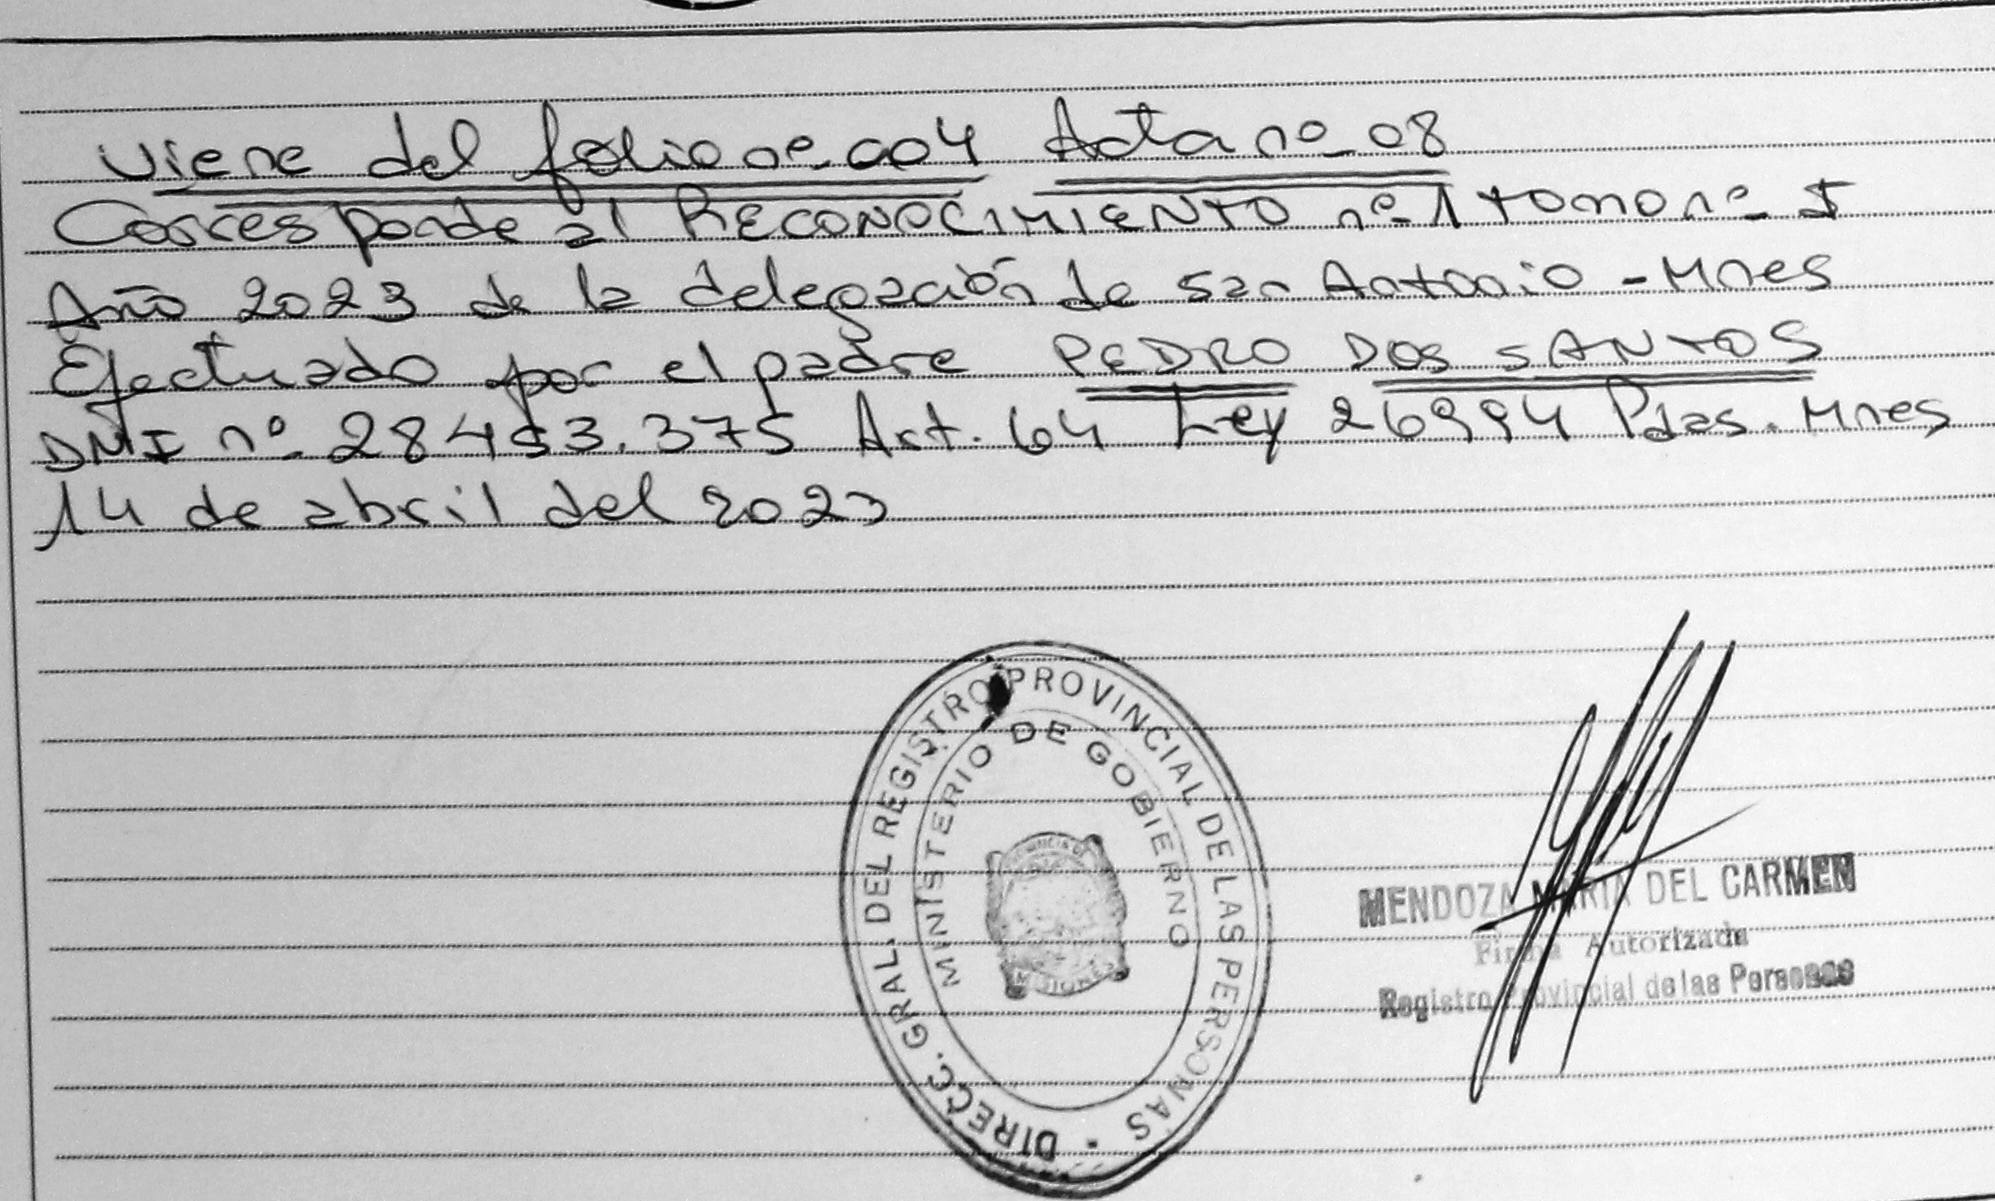 Viene del folio nº 004 Acta nº 08
Corresponde al RECONOCIMIENTO nº 1 tomo nº I
Año 2023 de la delegación de san Antonio - Mnes
Efectuado por el padre PEDRO DOS SANTOS
DMI nº 28453.375 Art. 64 Ley 26994 Pdas. Mnes
14 de abril del 2023
DIRECC. GRAL. DEL REGISTRO PROVINCIAL DE LAS PERSONAS
MINISTERIO DE GOBIERNO
PROVINCIA DE
MISIONES
MENDOZA MARIA DEL CARMEN
Firma Autorizada
Registro Provincial de las Personas